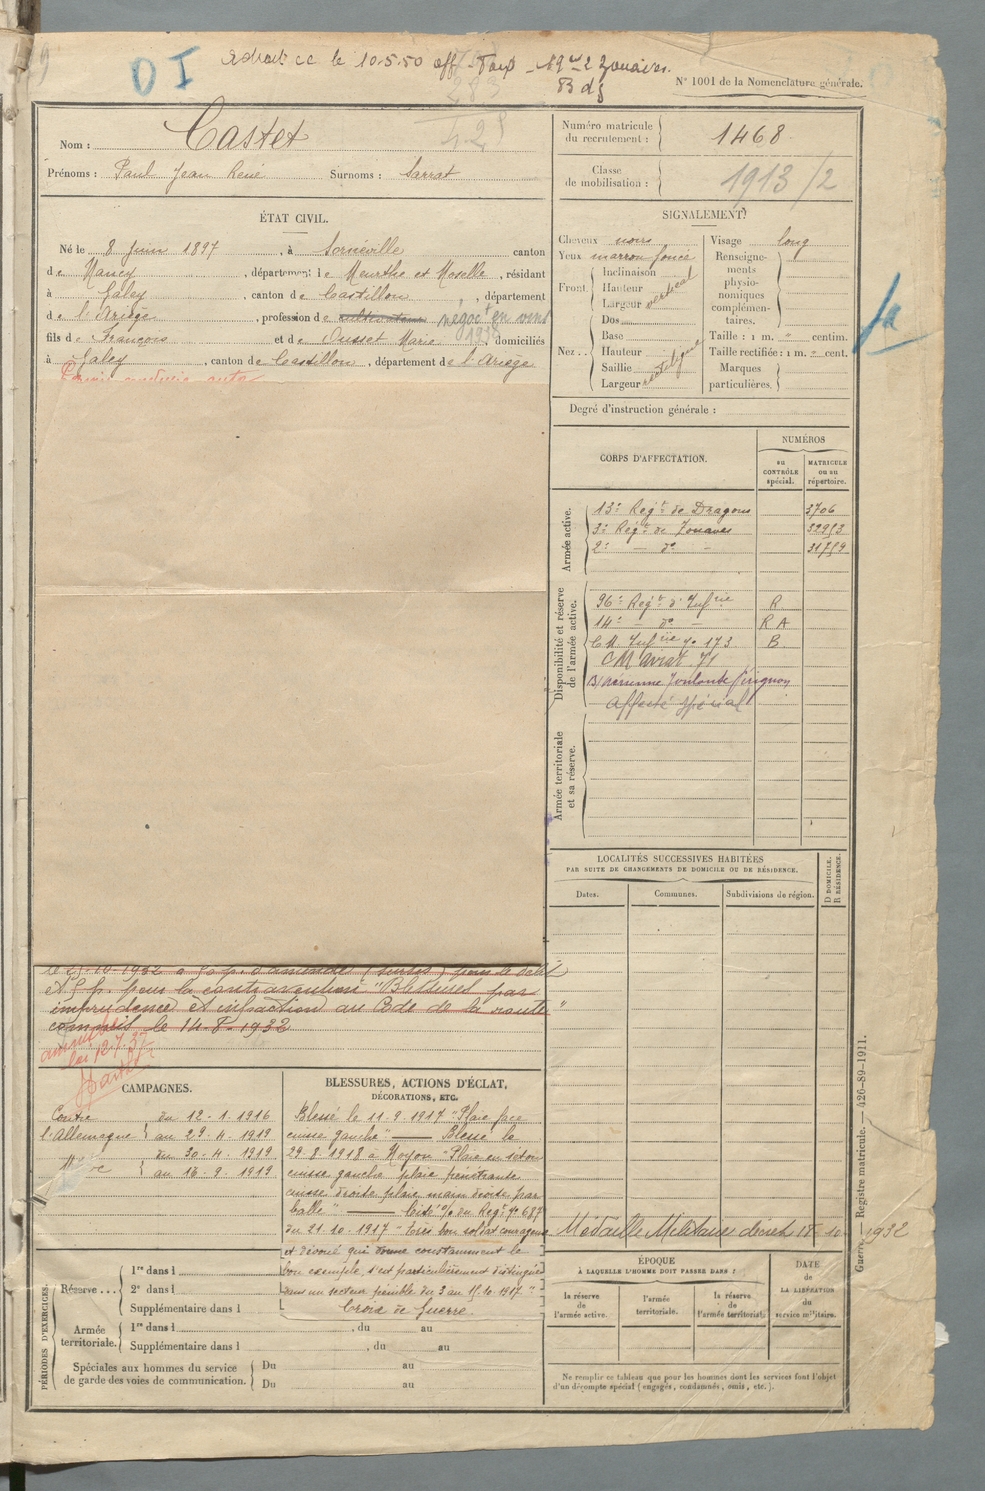 D I
le 10.5.50 aff
2 Zouaves.
N° 1001 de la Nomenclature générale.
Nom : Castet
Prénoms : Paul Jean René Surnoms : Sarrat
Numéro matricule du recrutement : 1468
Classe de mobilisation : 1913/2
ÉTAT CIVIL.
Né le 8 Juin 1897, à Sornéville canton
de Nancy, département de Meurthe et Moselle, résidant
à Galey, canton de Castillon, département
de l'Ariège, profession de cultivateur négoct en vins 1938
fils de François et de Ousset Marie domiciliés
à Galey, canton de Castillon, département de l'Ariège
SIGNALEMENT.
Cheveux noirs
Yeux marron foncé
Front. Inclinaison vertical
Hauteur
Largeur
Nez.. Dos
Base rectiligne
Hauteur
Saillie
Largeur
Visage long
Renseignements physionomiques complémentaires.
Taille : 1 m. " centim.
Taille rectifiée : 1 m. " cent.
Marques particulières.
Degré d'instruction générale :
CORPS D'AFFECTATION.
NUMÉROS
au CONTRÔLE spécial.
MATRICULE ou au répertoire.
Armée active.
13e Regt de Dragons 3706
3e Regt de Zouaves
2e — do —
Disponibilité et réserve de l'armée active.
96e Regt d'Infrie R
14e — do — R A
C M Infrie no 173 B
CM 71
Affecté spécial
Armée territoriale et sa réserve.
LOCALITÉS SUCCESSIVES HABITÉES
PAR SUITE DE CHANGEMENTS DE DOMICILE OU DE RÉSIDENCE.
Dates.
Communes.
Subdivisions de région.
D. DOMICILE.
R. RÉSIDENCE.
Médaille Militaire décret 18-10-1932
pour le délit
et 5 f. pour la contravention "Blessures par
imprudence et infraction au Code de la route"
commis le 14-8-1932
loi 12.7.37
CAMPAGNES.
Contre l'Allemagne du 12-1-1916
au 29-4-1919
du 30-4-1919
au 16-9-1919
BLESSURES, ACTIONS D'ÉCLAT,
DÉCORATIONS, ETC.
Blessé le 11-9-1917 "Plaie face
cuisse gauche" — Blessé le
29.8.1918 à Noyon "Plaie en séton
cuisse gauche plaie pénétrante
cuisse droite plaie main droite par
balle" — Cité o/ du Regt no 687
du 21.10.1917 "Très bon soldat courageux
et dévoué qui donne constamment le
bon exemple s'est particulièrement distingué
dans un secteur pénible du 3 au 15.10.1917"
Croix de Guerre.
PÉRIODES D'EXERCICES.
Réserve... 1re dans l
2e dans l
Supplémentaire dans l
Armée territoriale. 1re dans l , du au
Supplémentaire dans l , du au
Spéciales aux hommes du service de garde des voies de communication.
Du au
Du au
ÉPOQUE
À LAQUELLE L'HOMME DOIT PASSER DANS :
la réserve de l'armée active.
l'armée territoriale.
la réserve de l'armée territoriale.
DATE de LA LIBÉRATION du service militaire.
Ne remplir ce tableau que pour les hommes dont les services font l'objet
d'un décompte spécial (engagés, condamnés, omis, etc.).
Guerre. — Registre matricule. — 426-89-1911.